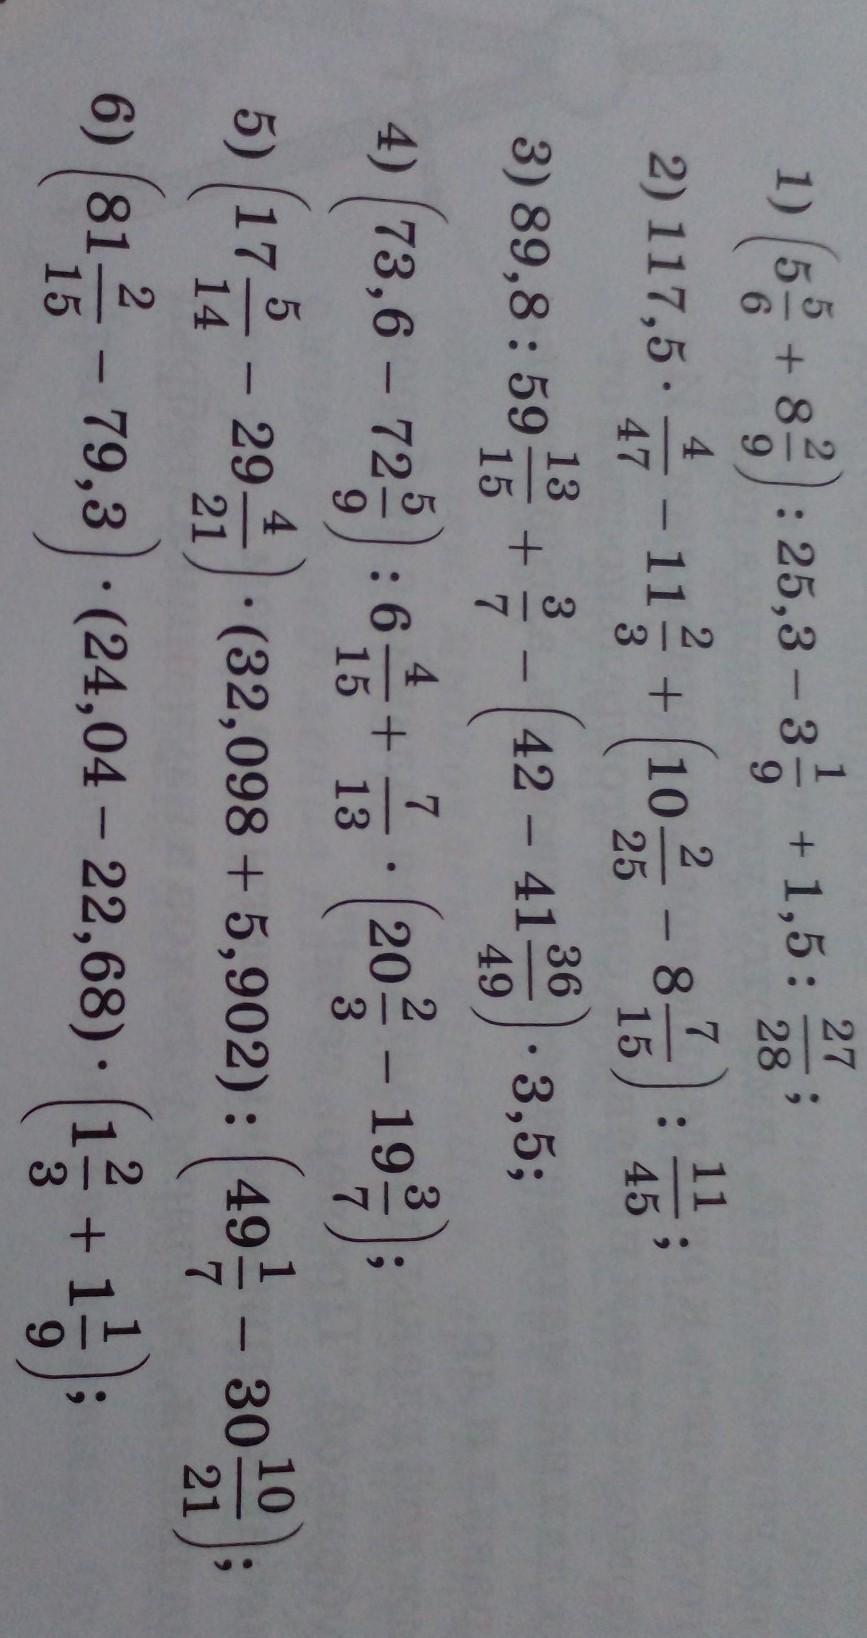 1) (5 5/6 + 8 2/9) : 25,3 − 3 1/9 + 1,5 : 27/28;
2) 117,5 · 4/47 − 11 2/3 + (10 2/25 − 8 7/15) : 11/45;
3) 89,8 : 59 13/15 + 3/7 − (42 − 41 36/49) · 3,5;
4) (73,6 − 72 5/9) : 6 4/15 + 7/13 · (20 2/3 − 19 3/7);
5) (17 5/14 − 29 4/21) · (32,098 + 5,902) : (49 1/7 − 30 10/21);
6) (81 2/15 − 79,3) · (24,04 − 22,68) · (1 2/3 + 1 1/9);